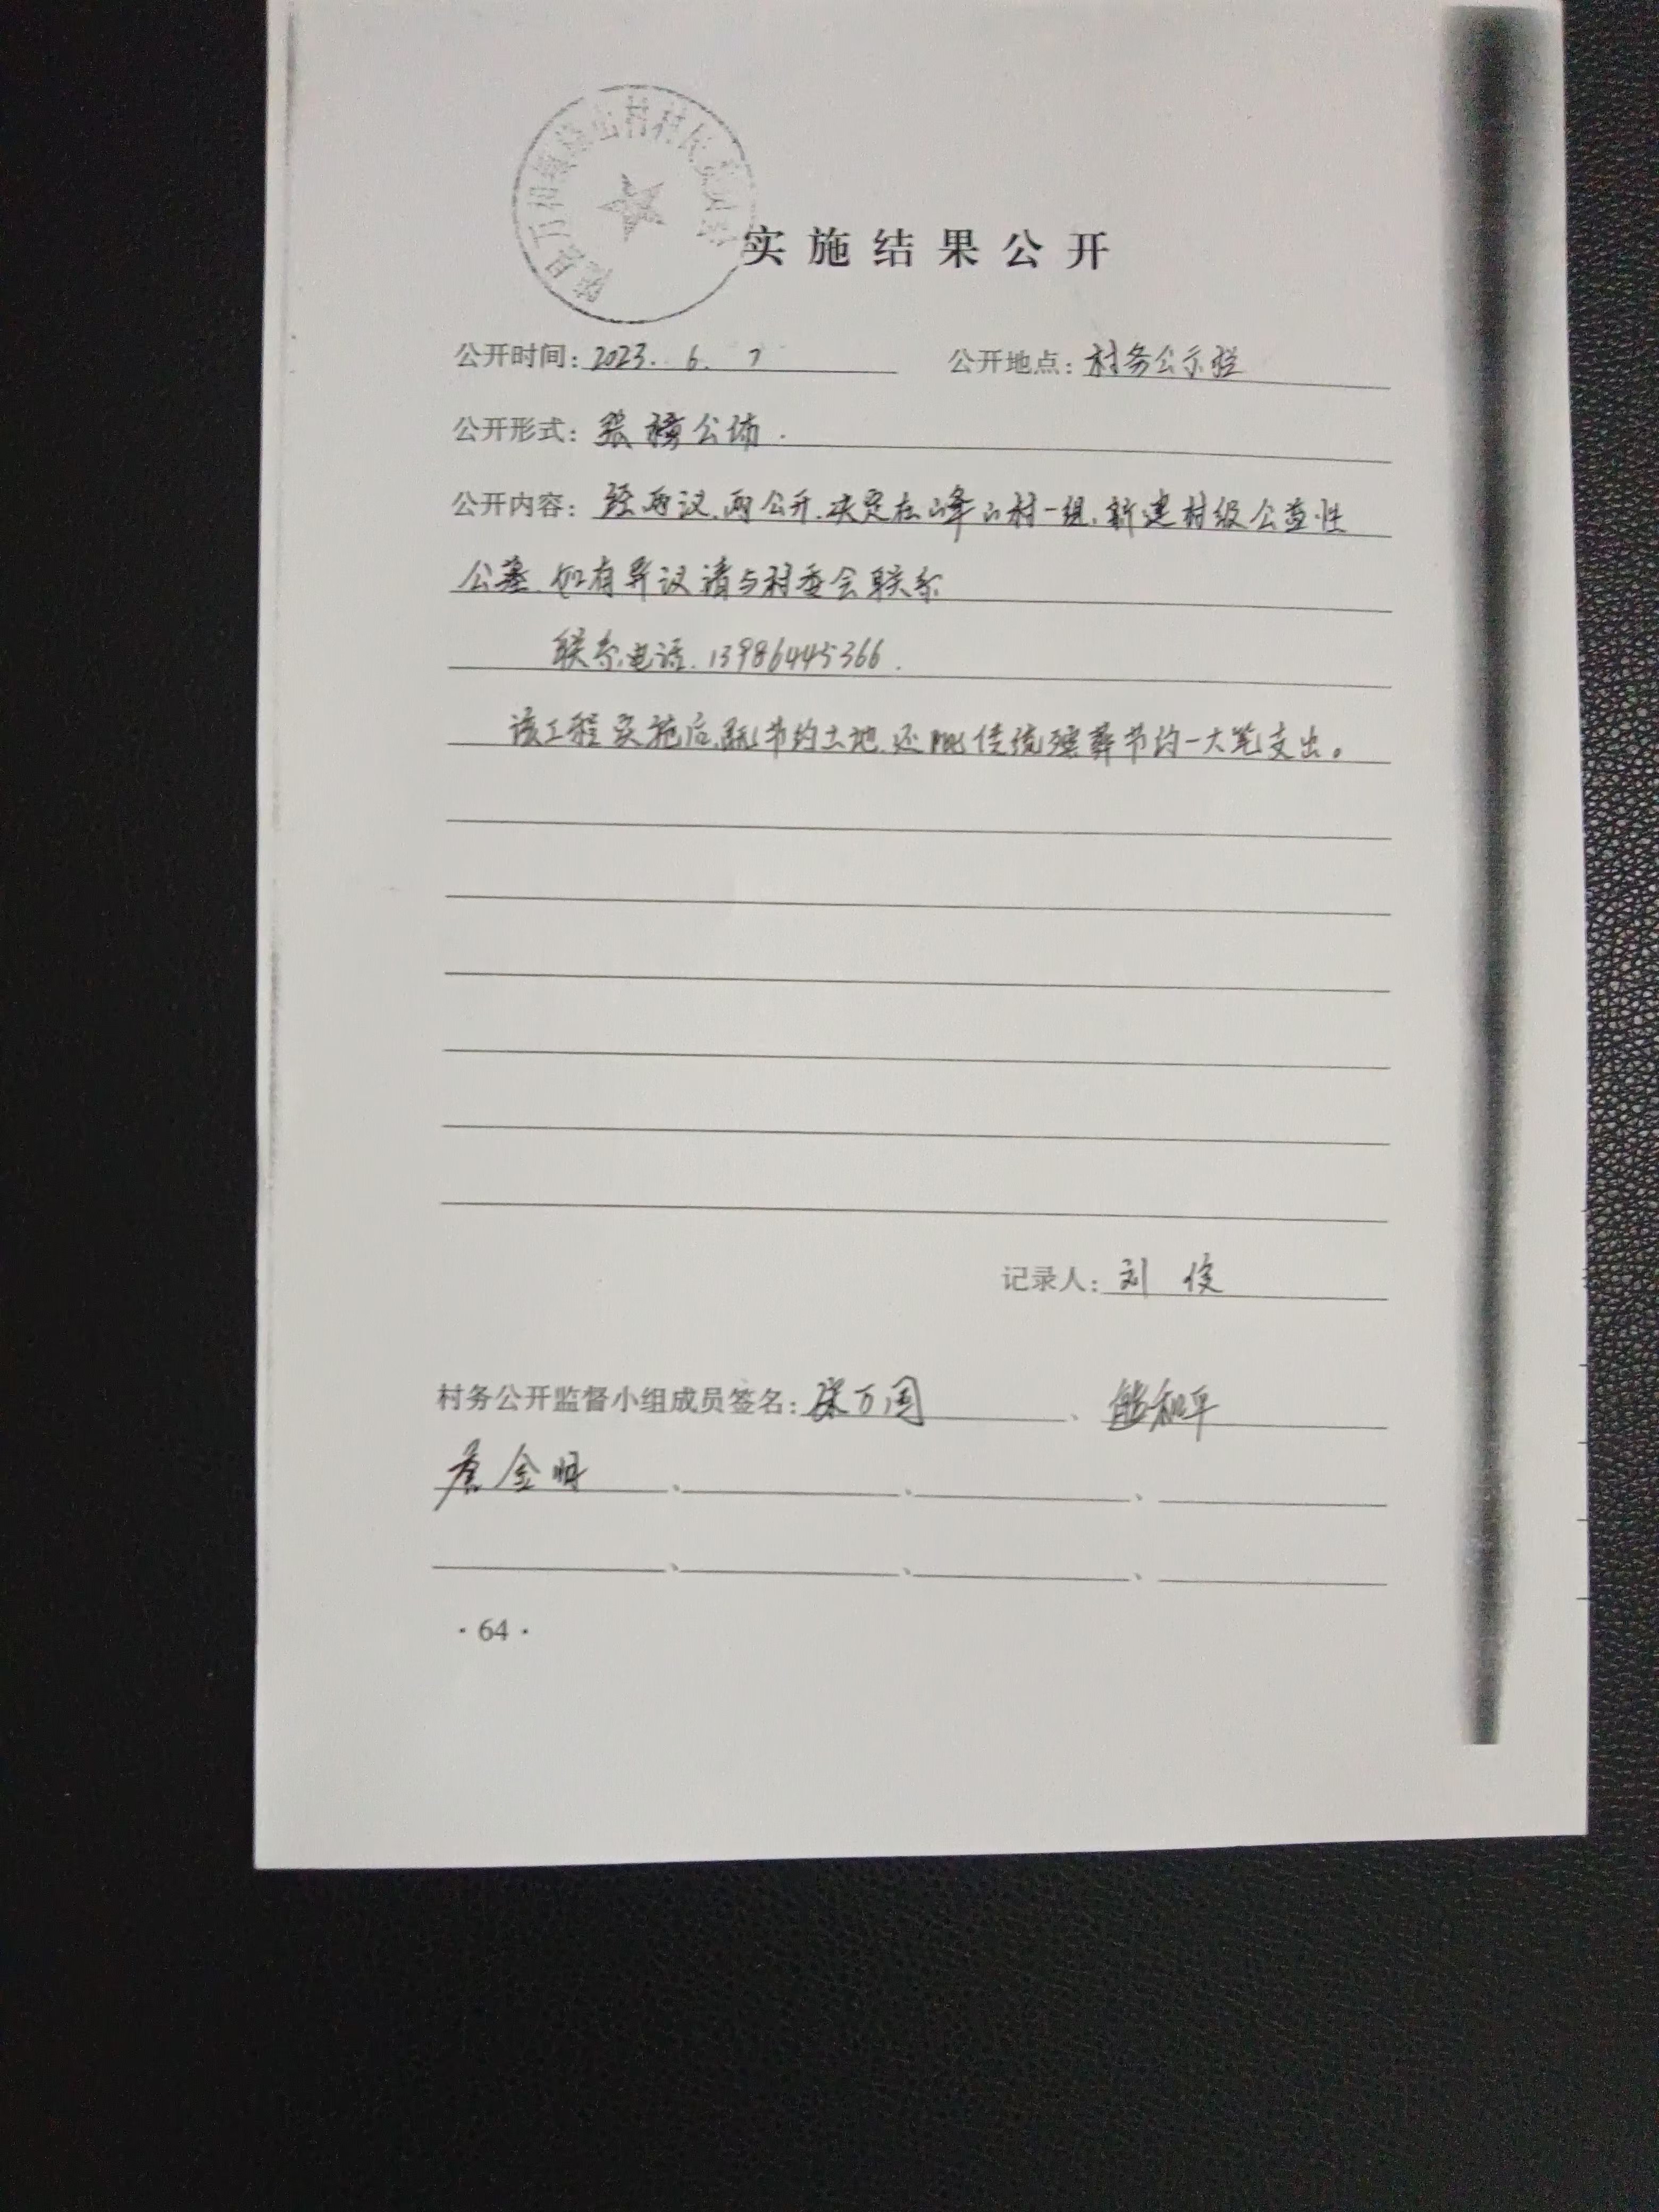 随县万和镇峰山村村民委员会
实施结果公开
公开时间：2023.6.7 公开地点：村务公示栏
公开形式：张榜公布.
公开内容：经两议、两公开、决定在峰山村一组，新建村级公益性
公墓、如有异议请与村委会联系
联系电话. 13986445366.
该工程实施后、既节约土地、还比传统殡葬节约一大笔支出。
记录人：刘俊
村务公开监督小组成员签名：张万国、熊和平
金明、、、
、、、
·64·